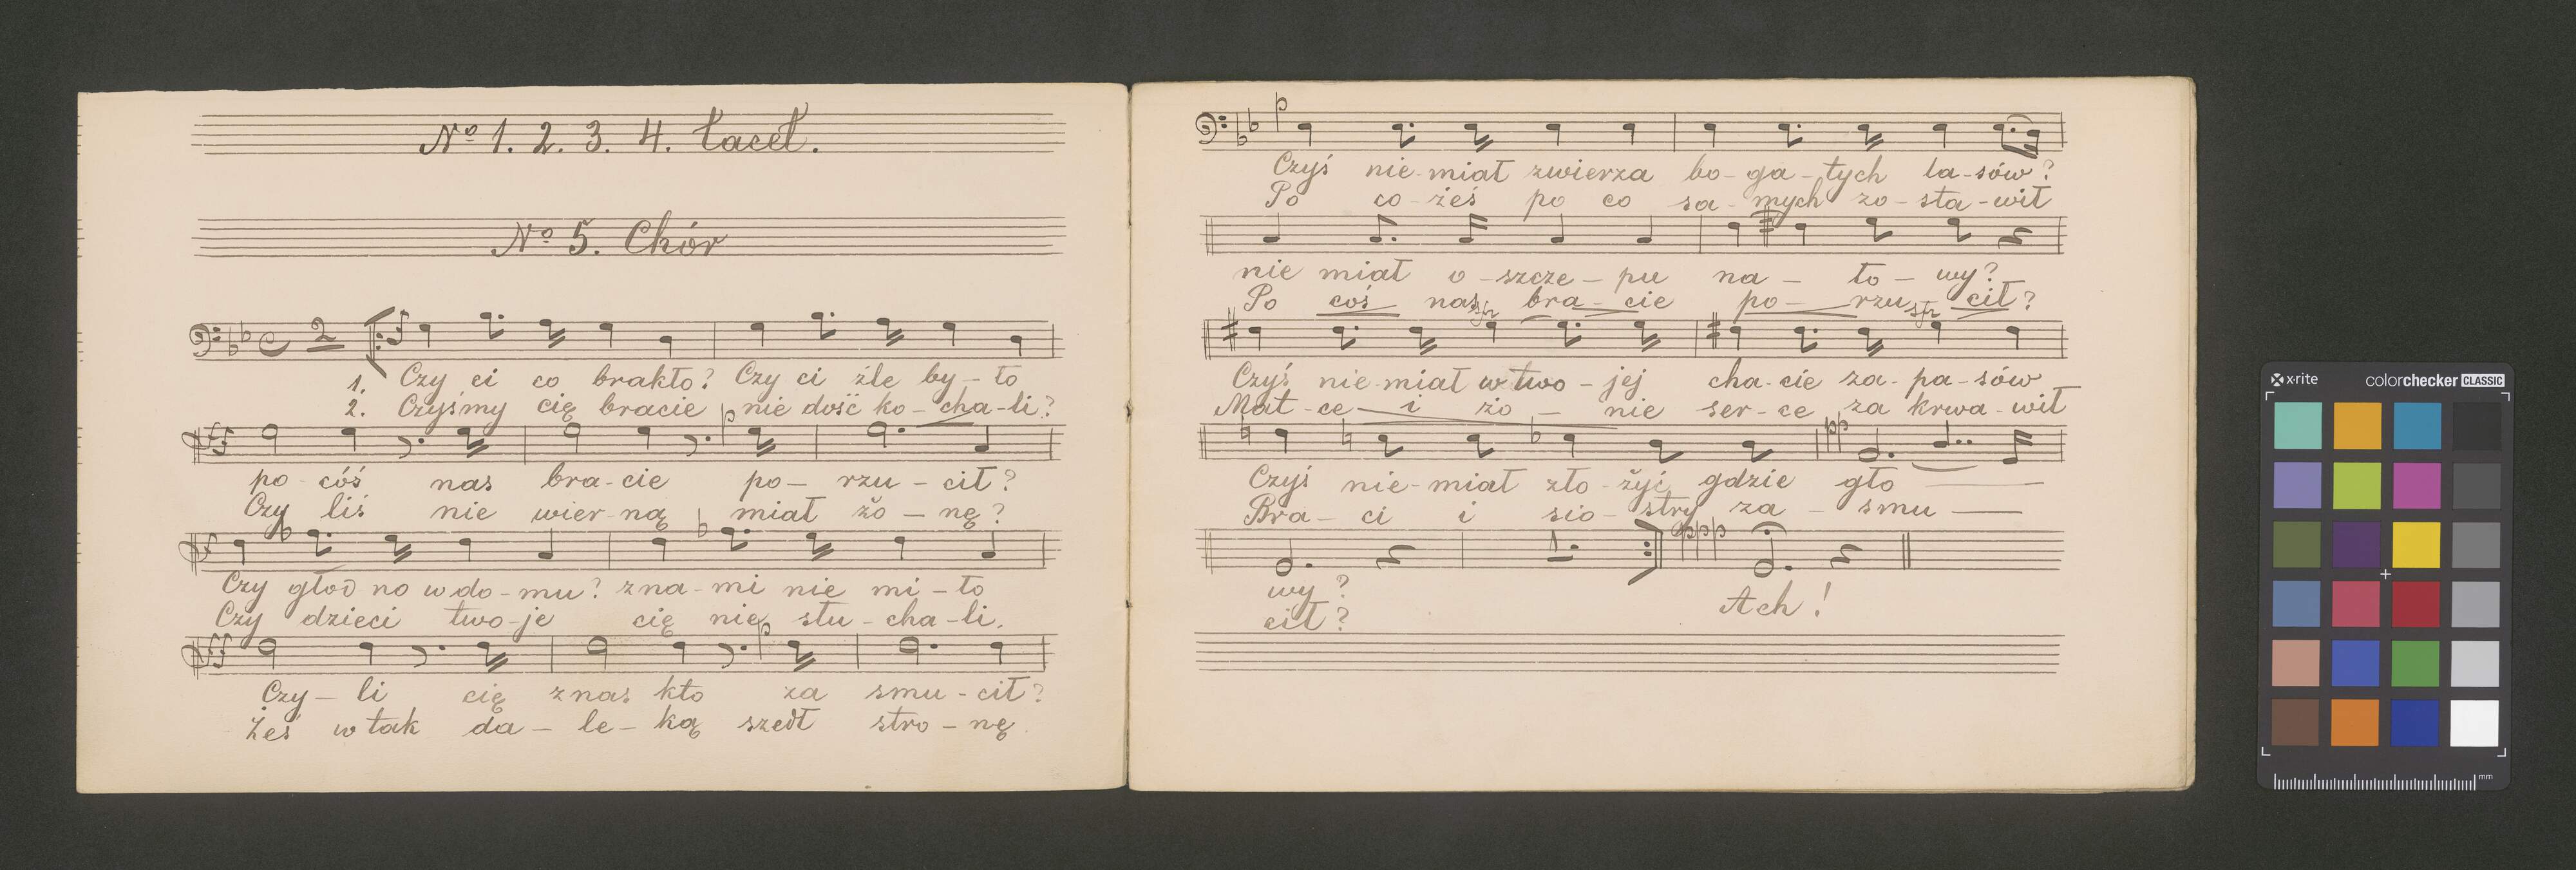 Nº 1. 2. 3. 4. tacet.
Nº 5. Chór
2
f
1. Czy ci co brakło? Czy ci źle by-ło
2. Czyśmy cię bracie nie dość ko-cha-li?
ff
p
po-cóś nas bra-cie po-rzu-cił?
Czy liś nie wier-ną miał žo-nę?
f
Czy głod no w do-mu? z na-mi nie mi-ło
Czy dzieci two-je cię nie słu-cha-li.
ff
p
Czy-li cię z nas kto za smu-cił?
Żeś w tak da-le-ką szedł stro-nę
p
Czyś nie-miał zwierza bo-ga-tych la-sów?
Po co-żeś po co sa-mych zo-sta-wił
nie miał o-szcze-pu na-ło-wy?
Po coś nas bra-cie po-rzu-cił?
sfz
sfz
Czyś nie-miał w two-jej cha-cie za-pa-sów
Mat-ce i żo-nie ser-ce za krwa-wił
pp
Czyś nie-miał zło-žyć gdzie gło
Bra-ci i sio-stry za-smu
ppp
wy? Ach!
cił?
x-rite colorchecker CLASSIC
mm